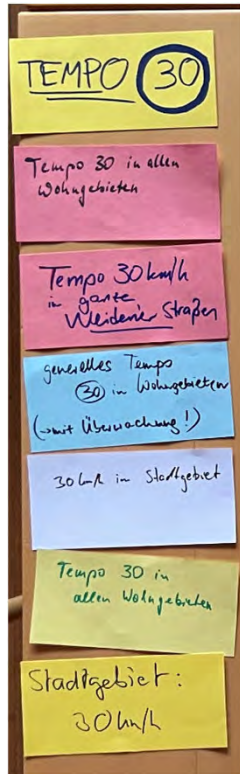 TEMPO 30
Tempo 30 in allen
Wohngebieten
Tempo 30 km/h
in ganze
Weidener Straßen
generelles Tempo
30 in Wohngebieten
(→ mit Überwachung!)
30 km/h in Stadtgebiet
Tempo 30 in
allen Wohngebieten
Stadtgebiet:
30 km/h